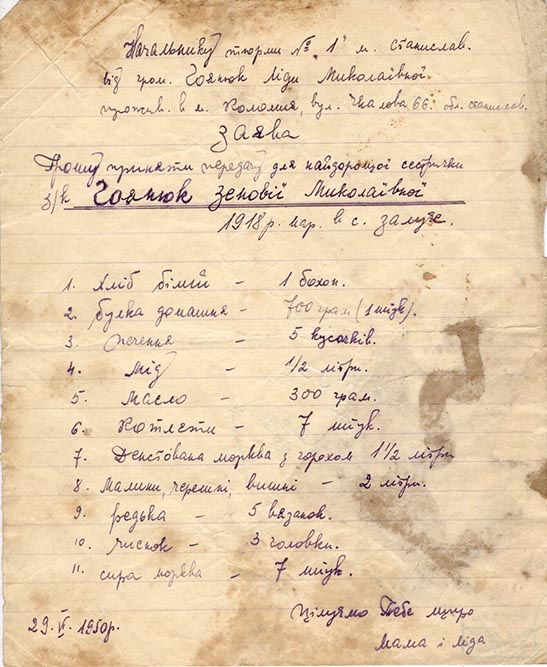 Начальнику тюрми № "1" м. Станислав.
від гром. Гоянюк Ліди Миколаївної
прожив. в м. Коломия, вул. Чкалова 66. обл. Станислав.
Заява
Прошу приняти передачу для найдорощої сестрички
з/к Гоянюк Зеновії Миколаївної
1918 р. нар. в с. Залуче.
1. Хліб білий – 1 бохон.
2. булка домашня – 700 грам (1 штук).
3. печення – 5 кусочків.
4. мід – 1/2 літри.
5. масло – 300 грам.
6. Котлети – 7 штук.
7. Денстована морква з горохом 1 1/2 літри
8. Малини, черешні, вишні – 2 літри.
9. редька – 5 вязанок.
10. чиснок – 3 головки.
11. сира морква – 7 штук.
29.VI.1950р.
Цілуємо Тебе щиро
мама і Ліда